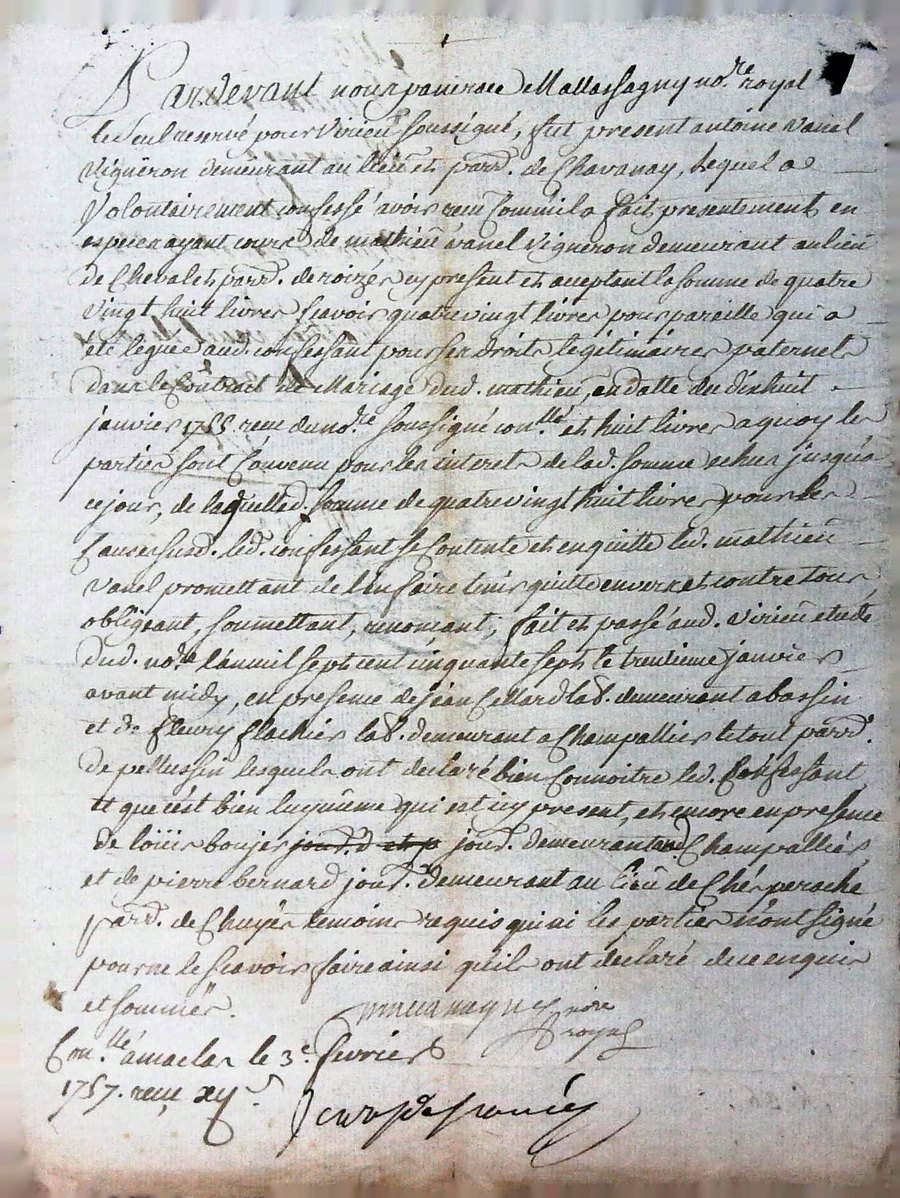 Pardevant nous pancrace Mallassagny no.re royal
le Seul reservé pour Virieu soussigné, fut present antoine Vanel
Vigneron demeurant au lieu et parr. de Chavanay, Lequel a
Volontairement confessé avoir receu comm'il a fait presentement en
especes ayant cours de mathieu vanel Vigneron demeurant au lieu
de Cheval et parr. de roizey cy present et acceptant la somme de quatre
vingt huit livres scavoir quatre vingt livres pour pareille qui a
été leguée aud. confessant pour ses droits legitimaires paternels
dans le Contract de Mariage dud. mathieu, en datte du dixhuit
janvier 1755 receu du no.re soussigné con.llé et huit livres a quoy les
parties sont Convenu pour les interets de lad. somme echus jusqu'a
ce jour, de laquelle d. somme de quatre vingt huit livres pour les
Causes susd. led. confessant se Contente et en quitte led. mathieu
Vanel promettant de l'en faire tenir quitte envers et contre tous
obligeant, soumettant, renoncant, fait et passé aud. Virieu etude
dud. no.re l'an mil sept cent cinquante sept le trentieme janvier
avant midy, en presence de jean Cellard lab. demeurant a bassin
et de fleury flachier lab. demeurant a Champallier le tout parr.
de pellussin lesquels ont declaré bien Connoitre led. Confessant
et que c'est bien luy même qui est icy present, et encore en presence
de loüis boujer jour. d et p jour. demeurant aud Champallier
et de pierre bernard jour. demeurant au lieu de Chés peroche
parr. de Chuyer temoins requis qui ni les parties n'ont signé
pour ne le scavoir faire ainsi qu'ils ont declaré de ce enquis
et sommés.
nore
royal
Con.llé a maclas le 3e. fevrier
1757. receu xijs